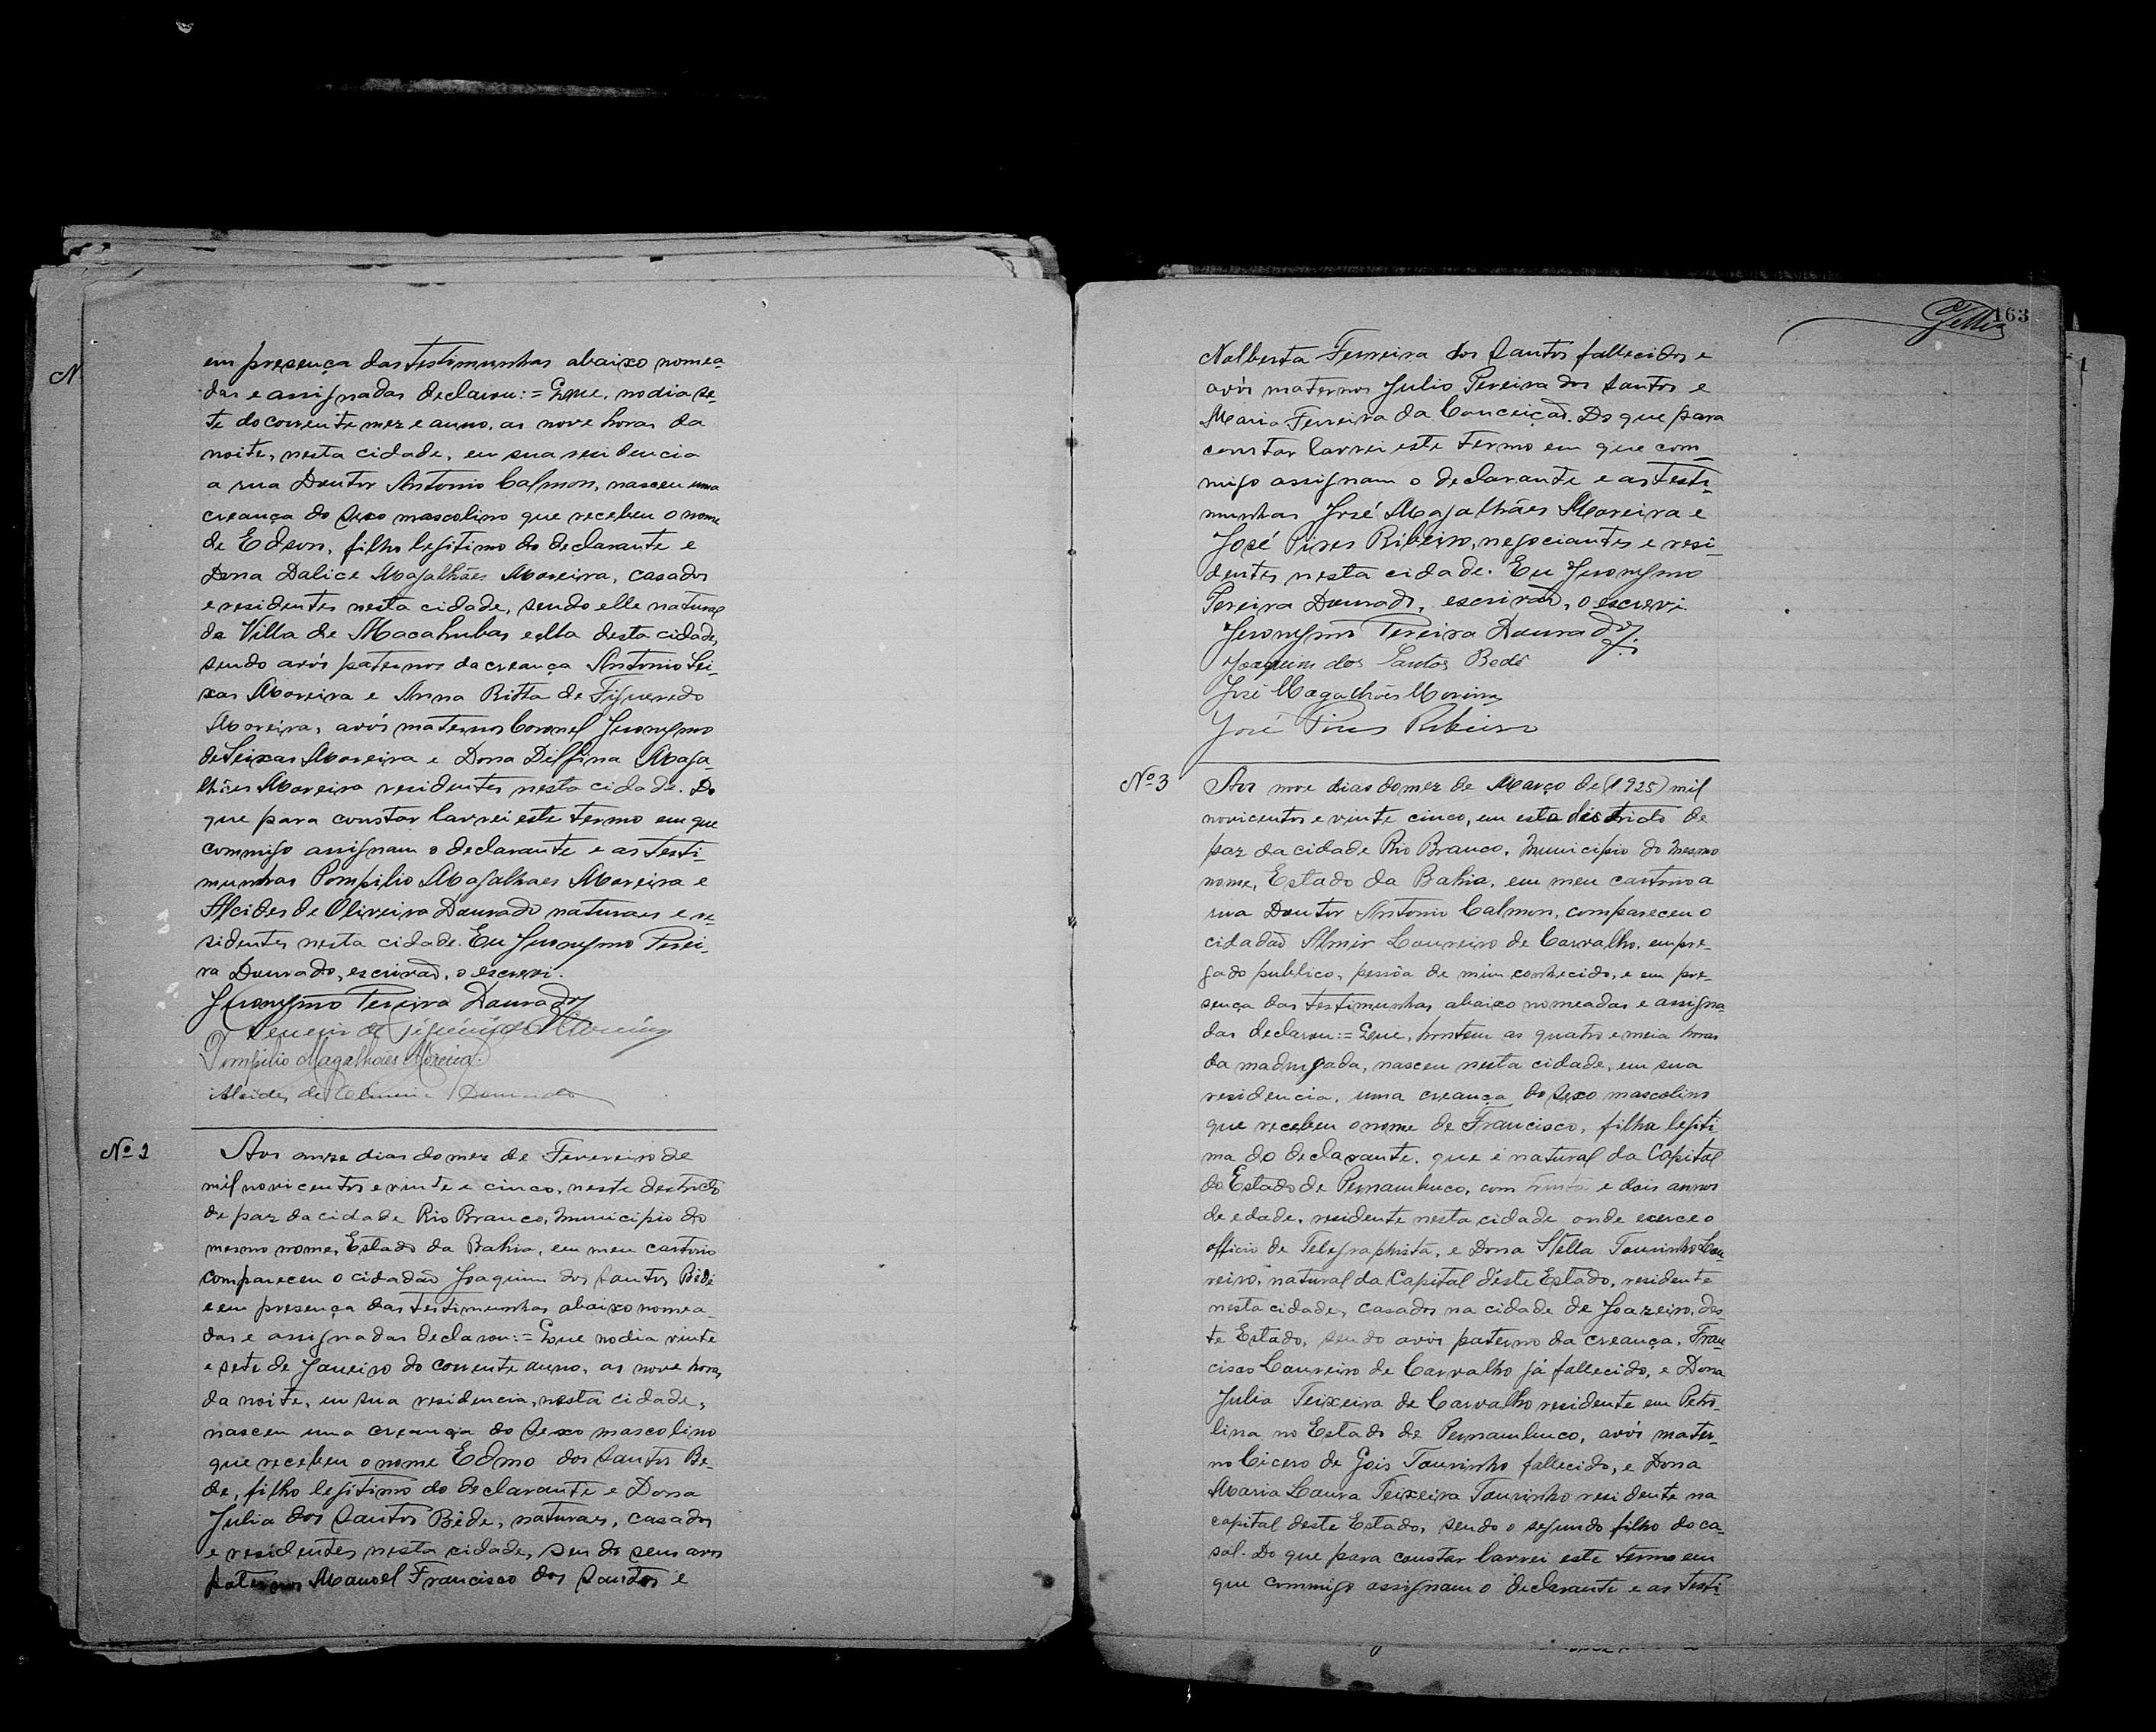 N
em presença das testimunhas abaixo nomea-
das e assignadas declarou:= Que, no dia se-
te do corrente mez e anno, as nove horas da
noite, nesta cidade, em sua residencia
a rua Doutor Antonio Calmon, nasceu uma
creança do sexo mascolino que recebeu o nome
de Edson, filho legitimo do declarante e
Dona Dalice Magalhães Moreira, casados
e residentes nesta cidade, sendo elle natural
da Villa de Macahubas e ella desta cidade,
sendo avós paternos da creança Antonio Sei-
xas Moreira e Anna Ritta de Figueredo
Moreira, avós maternos Coronel Jeronymo
de Seixas Moreira e Dona Delfina Maga-
lhães Moreira residentes nesta cidade. Do
que para constar lavrei este termo em que
commigo assignam o declarante e as testi-
munhas Pompilio Magalhaes Moreira e
Alcides de Oliveira Dourado naturaes e re-
sidentes nesta cidade. Eu Jeronymo Perei-
ra Dourado, escrivão, o escrevi.
Jeronymo Pereira Dourado
de Moreira
Pompilio Magalhães Moreira.
Alcides de Oliveira Dourado
Nº 2
Aos onze dias do mez de Fevereiro de
mil novicentos e vinte e cinco, neste destricto
de paz da cidade Rio Branco, Municipio do
mesmo nome, Estado da Bahia, em meu cartorio
compareceu o cidadão Joaquim dos Santos Bédé
e em presença das testimunhas abaixo nomea-
das e assignadas declarou:= Que no dia vinte
e sete de Janeiro do corrente anno, as nove horas
da noite, em sua residencia, nesta cidade,
nasceu uma creança do sexo mascolino
que recebeu o nome Edmo dos Santos Be-
de, filho legitimo do declarante e Dona
Julia dos Santos Béde, naturaes, casados
e residentes nesta cidade, sendo seus avos
paternos Manoel Francisco dos Santos e
163
Nalberta Ferreira dos Santos fallecidos e
avós maternos Julio Pereira dos Santos e
Maria Ferreira da Conceição. Do que para
constar lavrei este termo em que com-
migo assignam o declarante e as testi-
munhas José Magalhães Moreira e
José Pires Ribeiro, negociantes e resi-
dentes nesta cidade. Eu Jeronymo
Pereira Dourado, escrivão, o escrevi.
Jeronymo Pereira Dourado.
Joaquim dos Santos Bedê
José Magalhães Moreira
José Pires Ribeiro
Nº 3
Aos nove dias do mez de Março de (1925) mil
novicentos e vinte cinco, em este districto de
paz da cidade Rio Branco, Municipio do mesmo
nome, Estado da Bahia, em meu cartorio a
rua Doutor Antonio Calmon, compareceu o
cidadão Almir Loureiro de Carvalho, empre-
gado publico, pessôa de mim conhecido, e em pre-
sença das testimunhas abaixo nomeadas e assigna-
das declarou:= Que, hontem as quatro e meia horas
da madrugada, nasceu nesta cidade, em sua
residencia, uma creança do sexo mascolino
que recebeu o nome de Francisco, filha legiti
ma do declarante, que é natural da Capital
do Estado de Pernambuco, com trinta e dois annos
de edade, residente nesta cidade onde exerce o
officio de Telegraphista, e Dona Stella Tourinho Lou-
reiro, natural da Capital déste Estado, residente
nesta cidade, casados na cidade de Joazeiro, des-
te Estado, sendo avós paterno da creança, Fran-
cisco Loureiro de Carvalho já fallecido, e Dona
Julia Teixeira de Carvalho residente em Petro-
lina no Estado de Pernambuco, avós mater-
no Cicero de Gois Tourinho fallecido, e Dona
Maria Laura Teixeira Tourinho residente na
capital deste Estado, sendo o segundo filho do ca-
sal. Do que para constar lavrei este termo em
que commigo assignam o declarante e as testi-